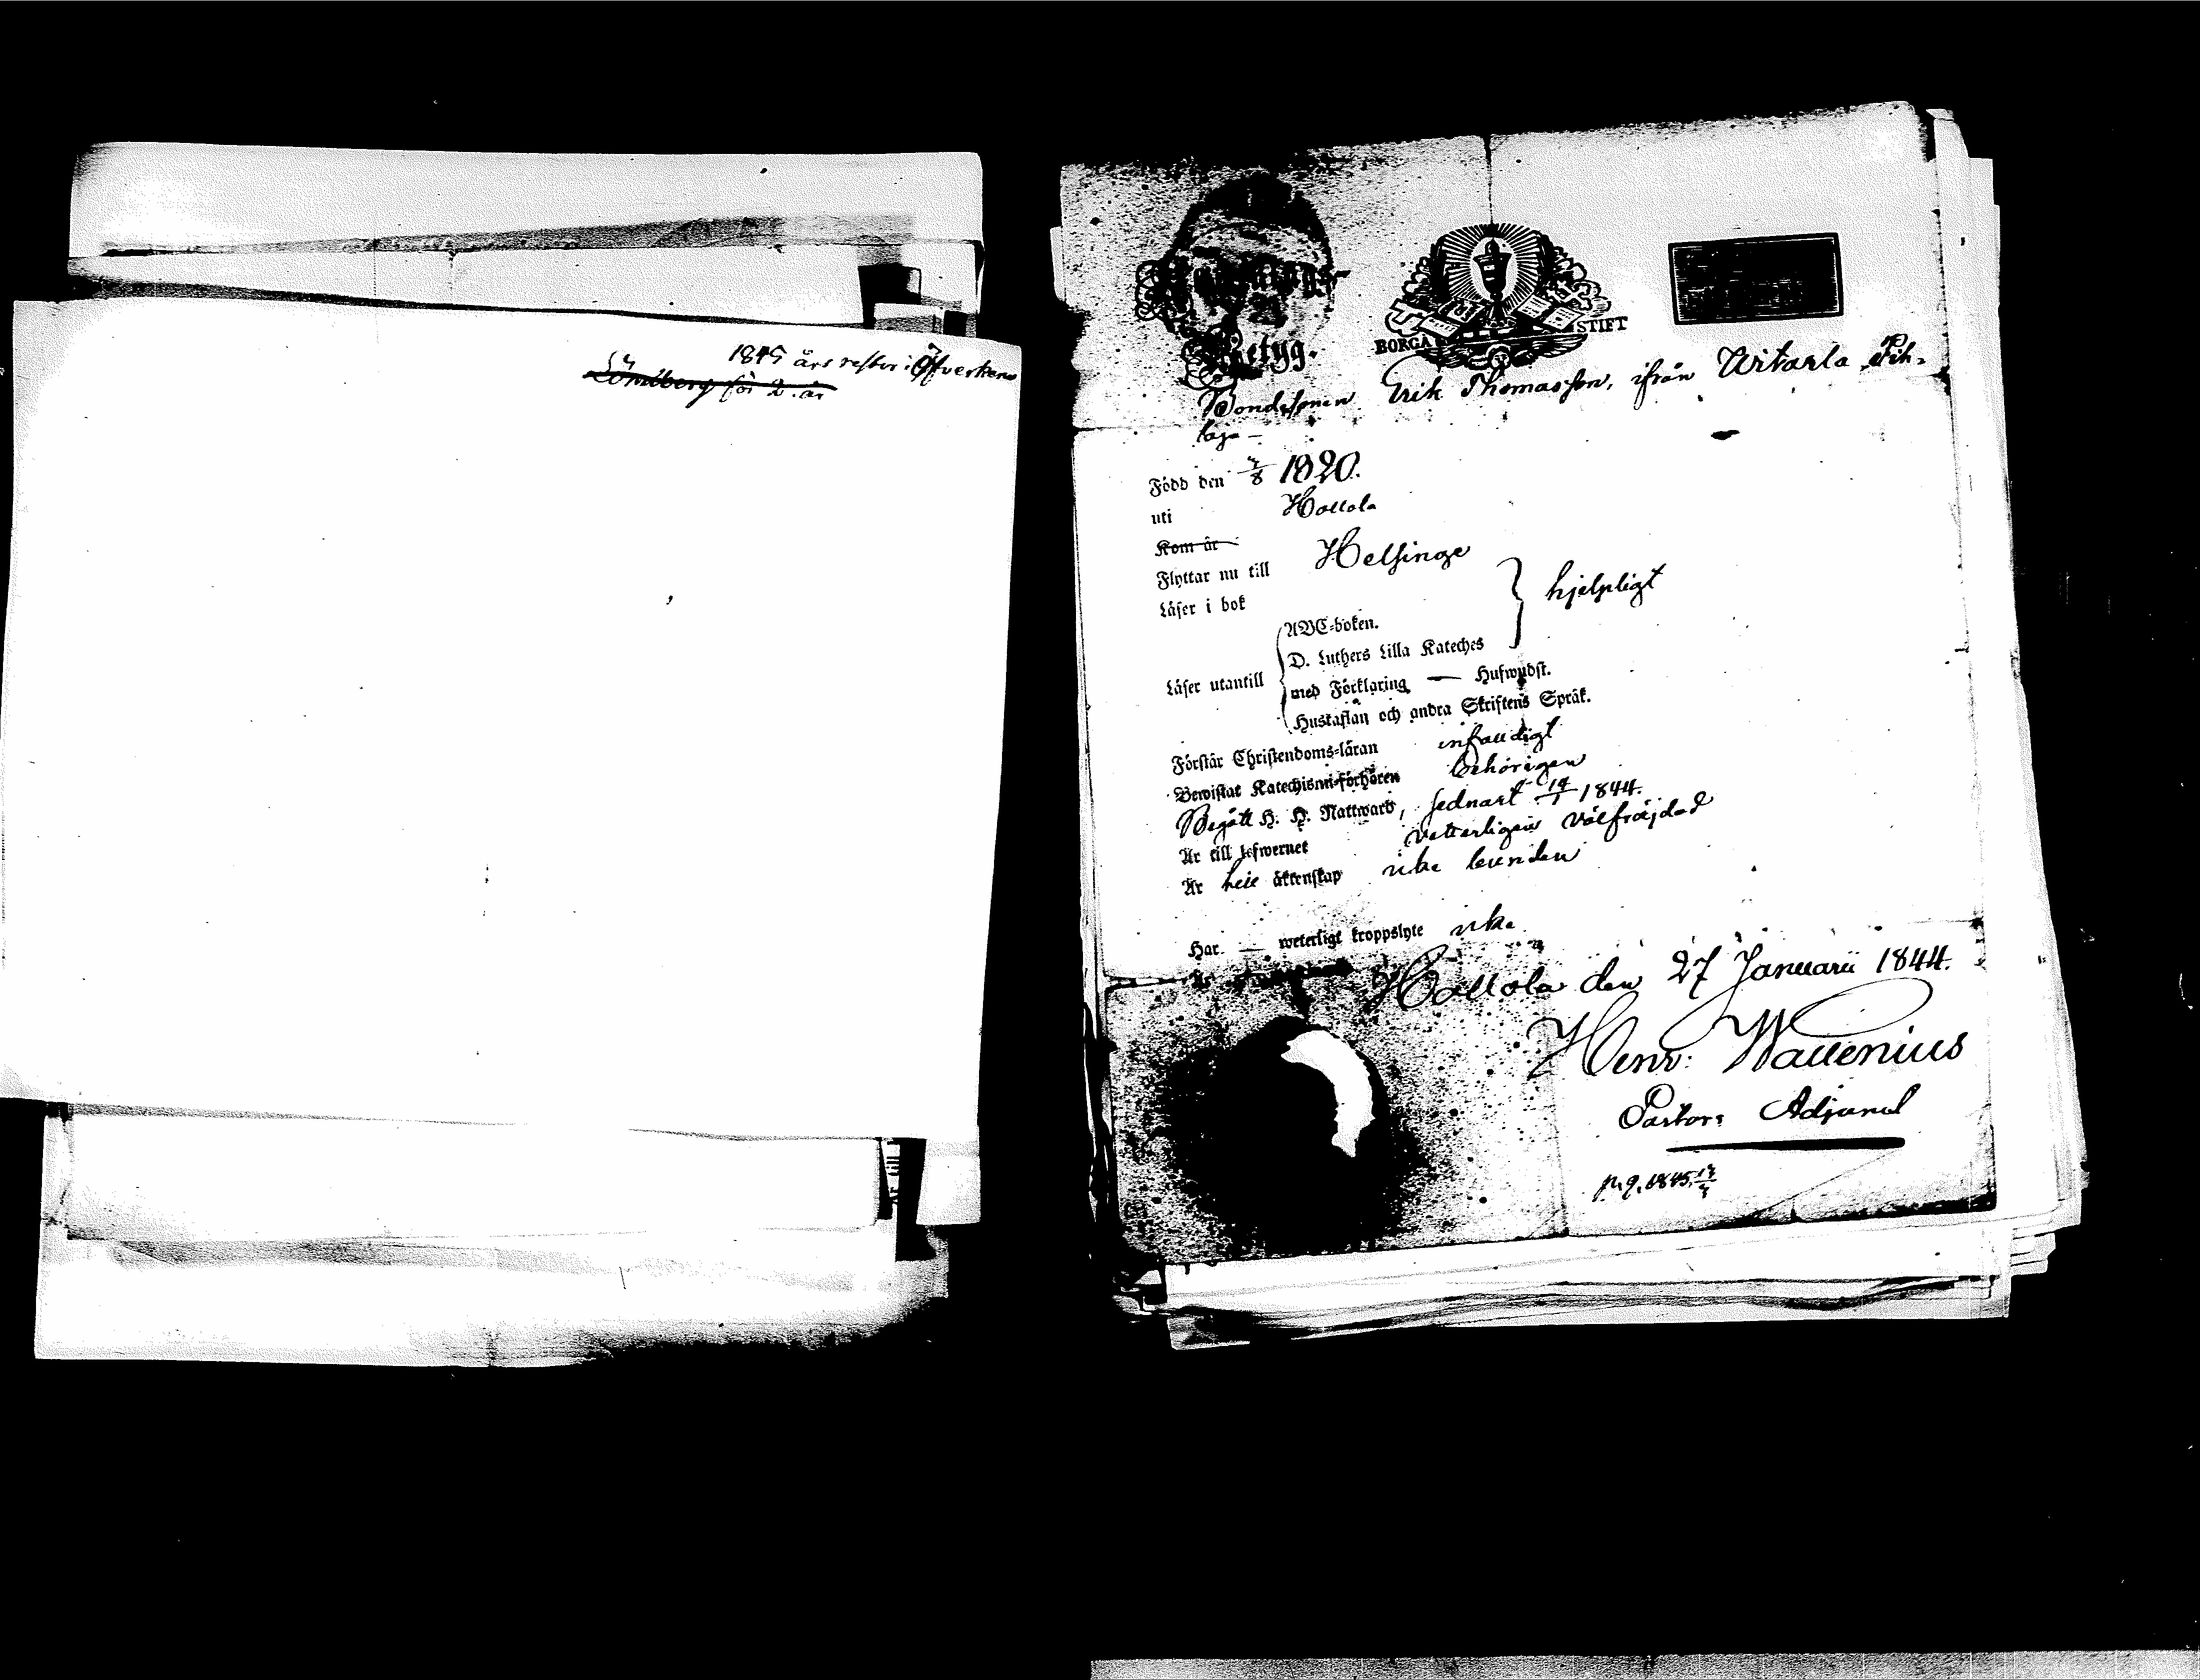 1845 års restor i Öfverken
Lönnberg för 2. år
Betyg.
BORGA STIFT
Bondesonen Erik Thomasson, ifrån Uitarla Pih-
laja —
Född den 3/8 1820.
uti Hollola
Kom år
Flyttar nu till Helsinge
Läser i bok
hjelpligt
Läser utantill
ABC-boken.
D. Luthers Lilla Kateches
med Förklaring — Hufwudst.
Hustaflan och andra Skriftens Språk.
Förstår Christendoms-läran enfaldigt
Bewistat Katechismi-förhören behörigen
Begått H. H. Nattward, sednast 14/1 1844.
Är till lefwernet vetterligen välfräjdad
Är till äktenskap icke bunden
Har — weterligt kroppslyte icke
Hollola den 27 Januarii 1844.
Henr: Wallenius
Pastors Adjunct